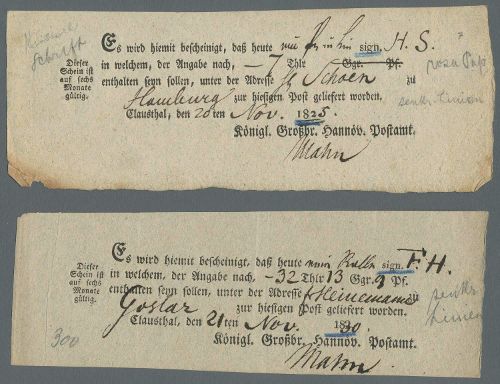 kleine
Schrift
Es wird hiemit bescheinigt, daß heute sign. H. S.
Dieser
Schein ist
auf sechs
Monate
gültig.
in welchem, der Angabe nach, — 7 Thlr Ggr. Pf.
enthalten seyn sollen, unter der Adresse Schoen zu
Hamburg zur hiesigen Post geliefert worden.
Clausthal, den 20ten Nov. 1825.
Königl. Großbr. Hannöv. Postamt.
Mahn
rosa Pap
senkr. Linien
Es wird hiemit bescheinigt, daß heute sign. F. H.
Dieser
Schein ist
auf sechs
Monate
gültig.
in welchem, der Angabe nach, — 32 Thlr 13 Ggr. 9 Pf.
enthalten seyn sollen, unter der Adresse Heinemann zu
Goslar zur hiesigen Post geliefert worden.
Clausthal, den 21ten Nov. 1830.
Königl. Großbr. Hannöv. Postamt.
Mahn
senkr.
Linien
300